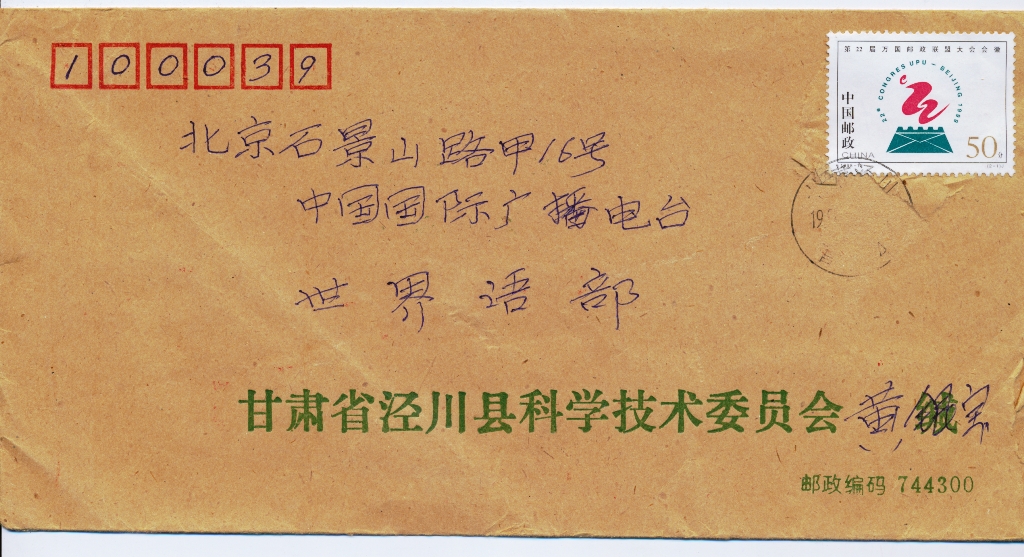 100039
第22届万国邮政联盟大会会徽
22e CONGRES UPU - BEIJING 1999
中国邮政
CHINA
50分
北京石景山路甲16号
中国国际广播电台
世界语部
19
甘肃省泾川县科学技术委员会 黄银宝
邮政编码 744300